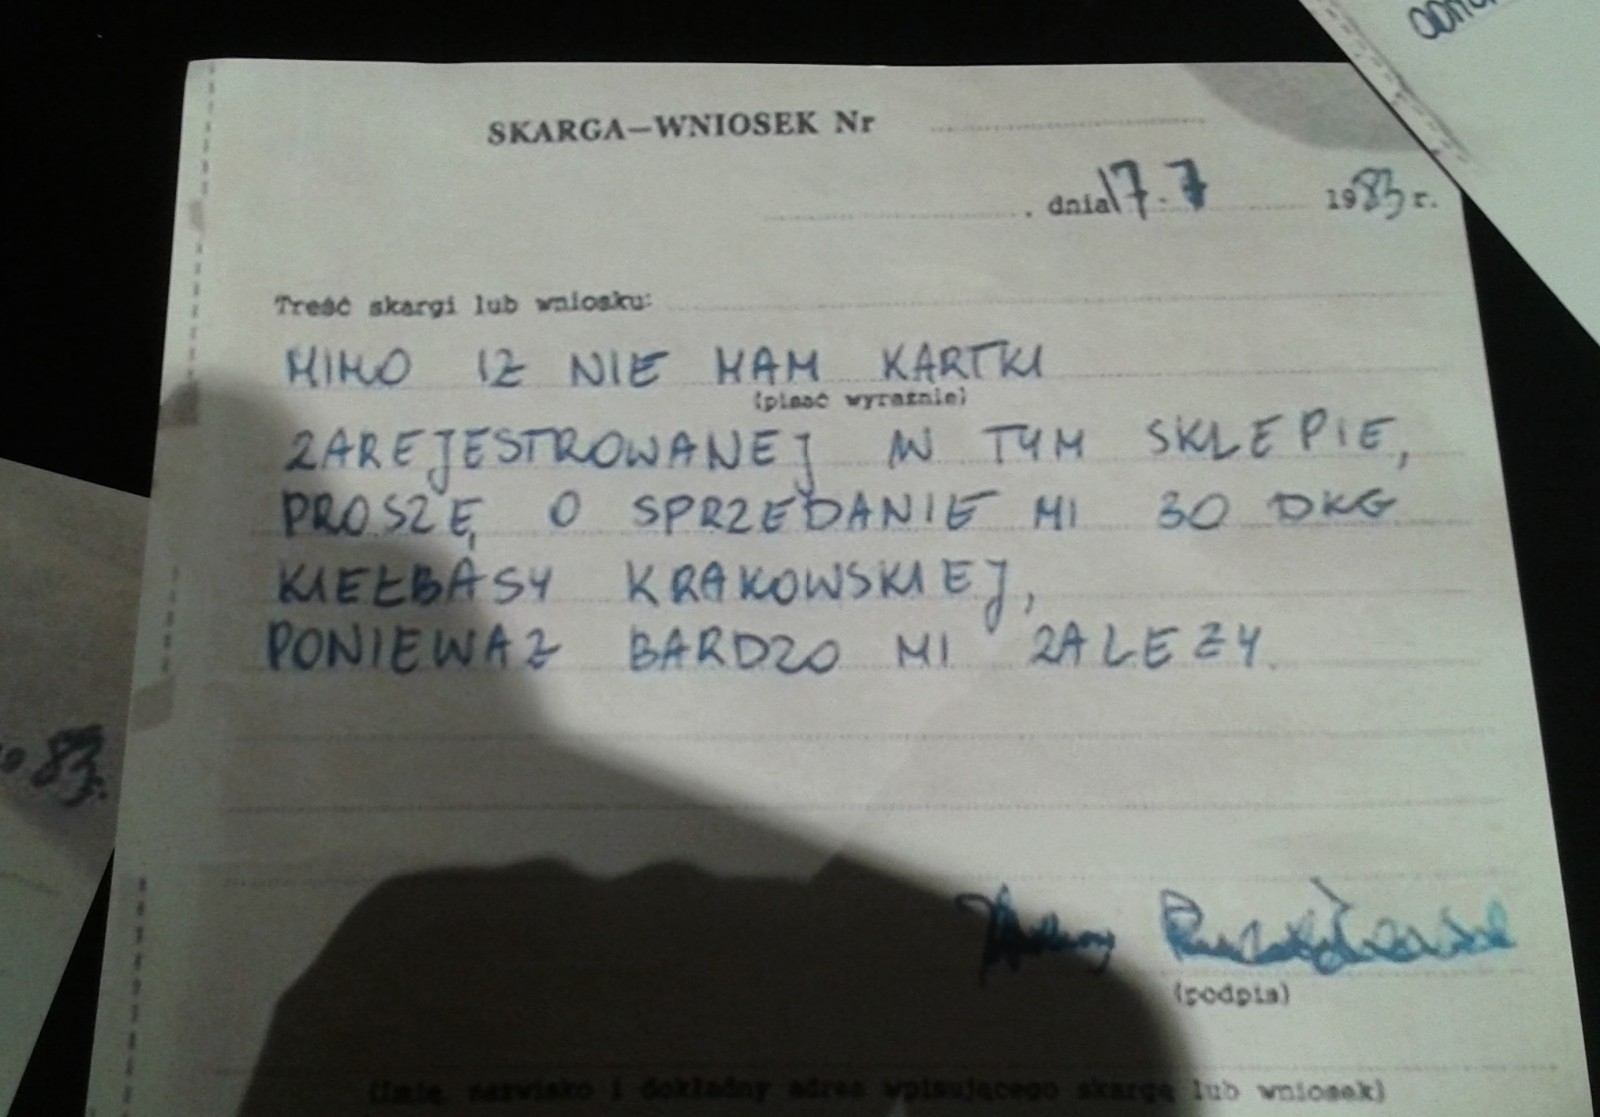 SKARGA—WNIOSEK Nr
dnia 17.7 1983 r.
Treść skargi lub wniosku:
MIMO IŻ NIE MAM KARTKI
(pisać wyraźnie)
ZAREJESTROWANEJ W TYM SKLEPIE,
PROSZĘ O SPRZEDANIE MI 30 DKG
KIEŁBASY KRAKOWSKIEJ,
PONIEWAŻ BARDZO MI ZALEŻY.
(podpis)
(imię nazwisko i dokładny adres wpisującego skargę lub wniosek)
83